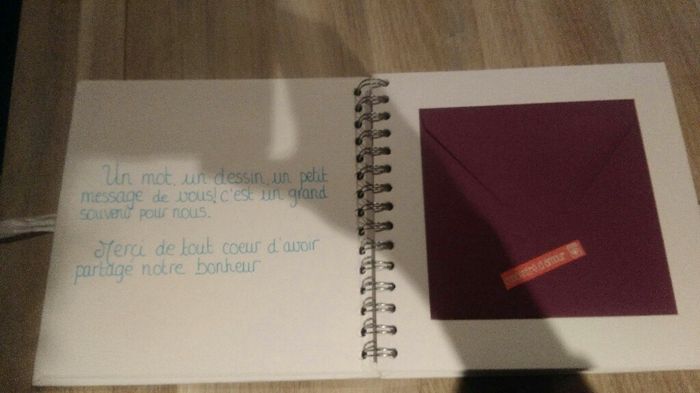 Un mot, un dessin, un petit
message de vous! c'est un grand
souvenir pour nous.
Merci de tout coeur d'avoir
partagé notre bonheur